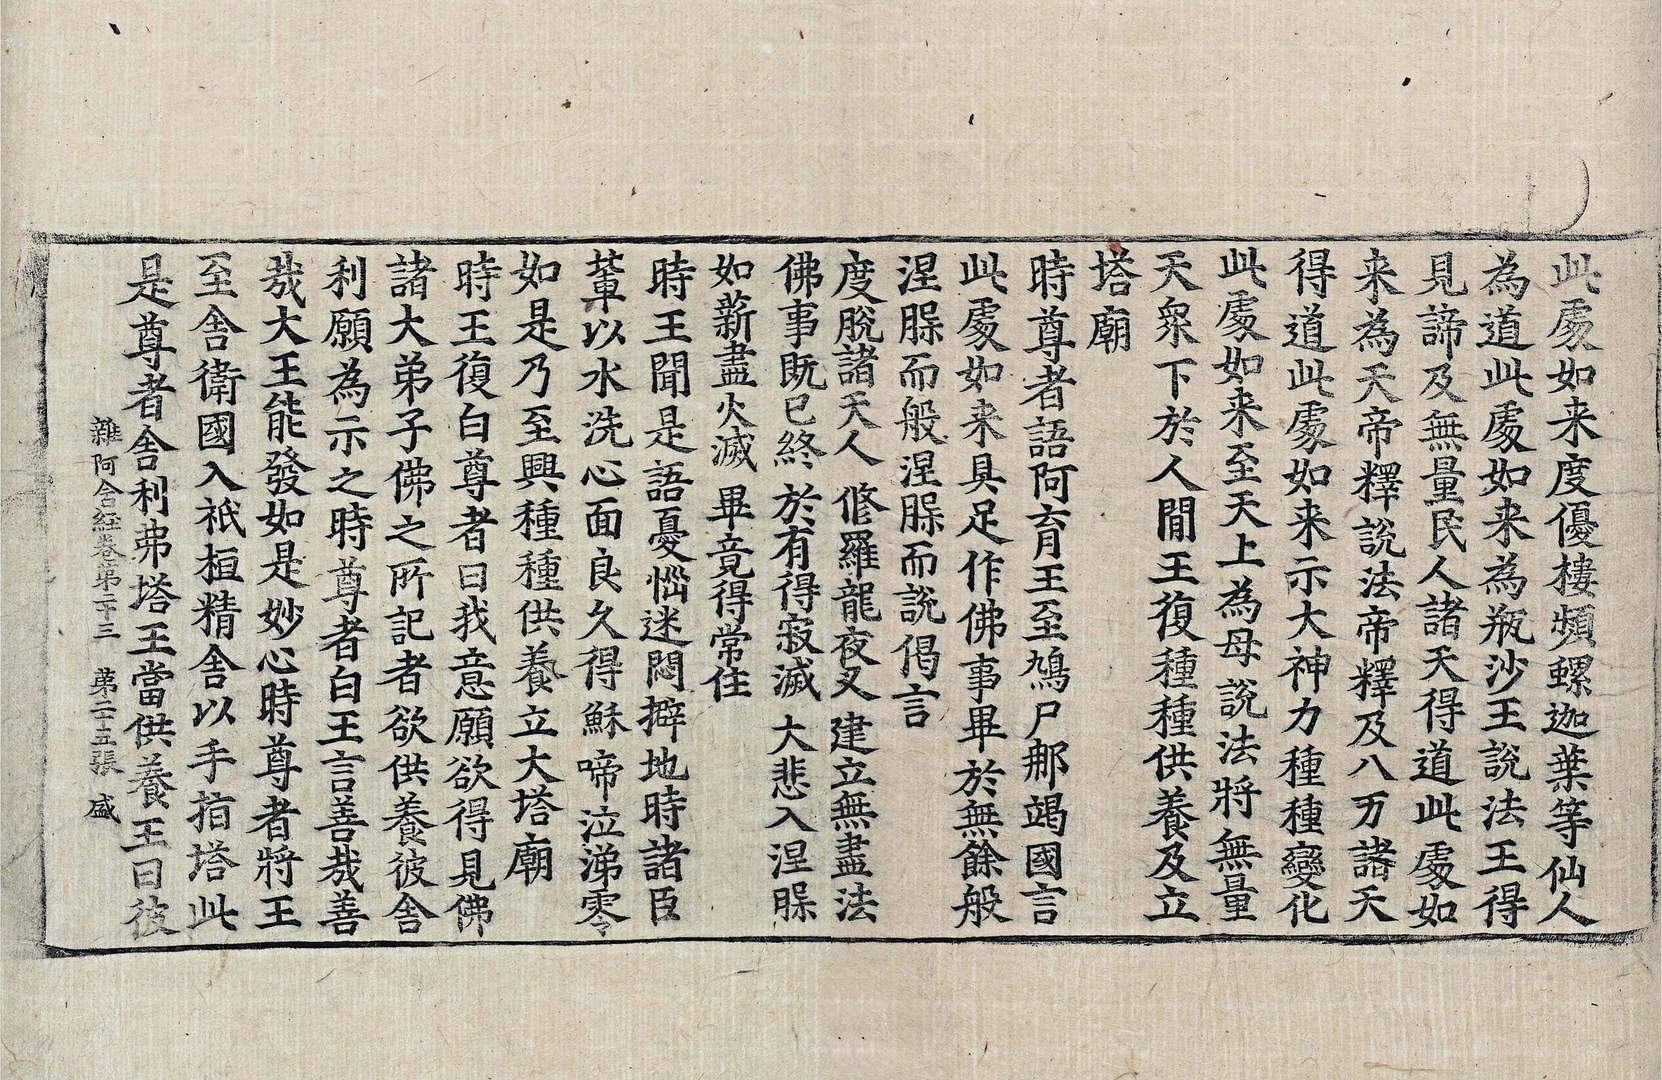 此䖏如来度優樓頻螺迦葉等仙人
為道此䖏如来為瓶沙王說法王得
見諦及無量民人諸天得道此䖏如
来為天帝釋說法帝釋及八万諸天
得道此䖏如来示大神力種種變化
此䖏如来至天上為母說法將無量
天衆下於人閒王復種種供養及立
塔廟
時尊者語阿育王至鳩尸那竭國言
此䖏如来具足作佛事畢於無餘般
涅腅而般涅腅而說偈言
度脫諸天人　修羅龍夜叉　建立無盡法
佛事既已終　於有得寂滅　大悲入涅腅
如薪盡火滅　畢竟得常住
時王聞是語憂惱迷悶擗地時諸臣
輩以水洗心面良久得穌啼泣涕零
如是乃至興種種供養立大塔廟
時王復白尊者曰我意願欲得見佛
諸大弟子佛之所記者欲供養彼舍
利願為示之時尊者白王言善㢤善
㢤大王能發如是妙心時尊者將王
至舍衛國入祇桓精舍以手指塔此
是尊者舍利弗塔王當供養王曰彼
雜阿含經卷第二十三　第二十五張　盛